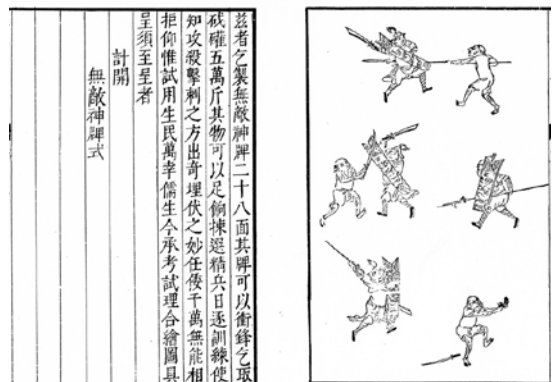 茲者乞製無敵神牌二十八面其牌可以衝鋒乞取
硴礶五萬斤其物可以足餉揀選精兵日逐訓練使
知攻殺擊刺之方出奇埋伏之妙任倭千萬無能相
拒仰惟試用生民萬幸儒生今承考試理合繪圖具
呈須至呈者
計開
無敵神牌式